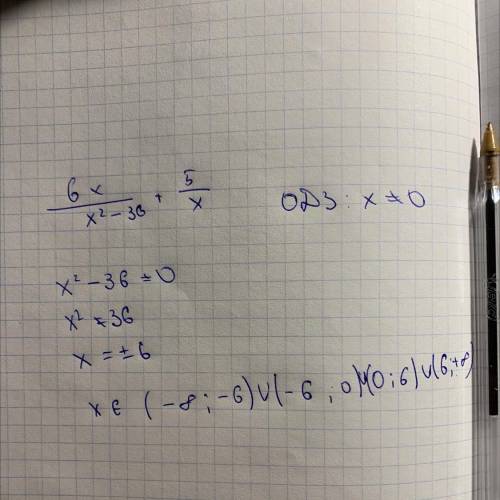 6x/(x² – 36) + 5/x ОДЗ: x ≠ 0
x² – 36 ≠ 0
x² ≠ 36
x = ± 6
x ∈ (-∞; -6) ∪ (-6; 0) ∪ (0; 6) ∪ (6; +∞)